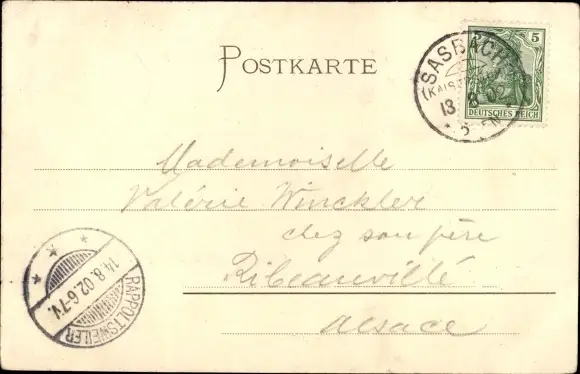 POSTKARTE
5
DEUTSCHES REICH
SASBACH
13 8 02
Mademoiselle
Valérie Winckler
chez son père
Ribeauvillé
Alsace
14.8.02.6-7V.
RAPPOLTSWEILER